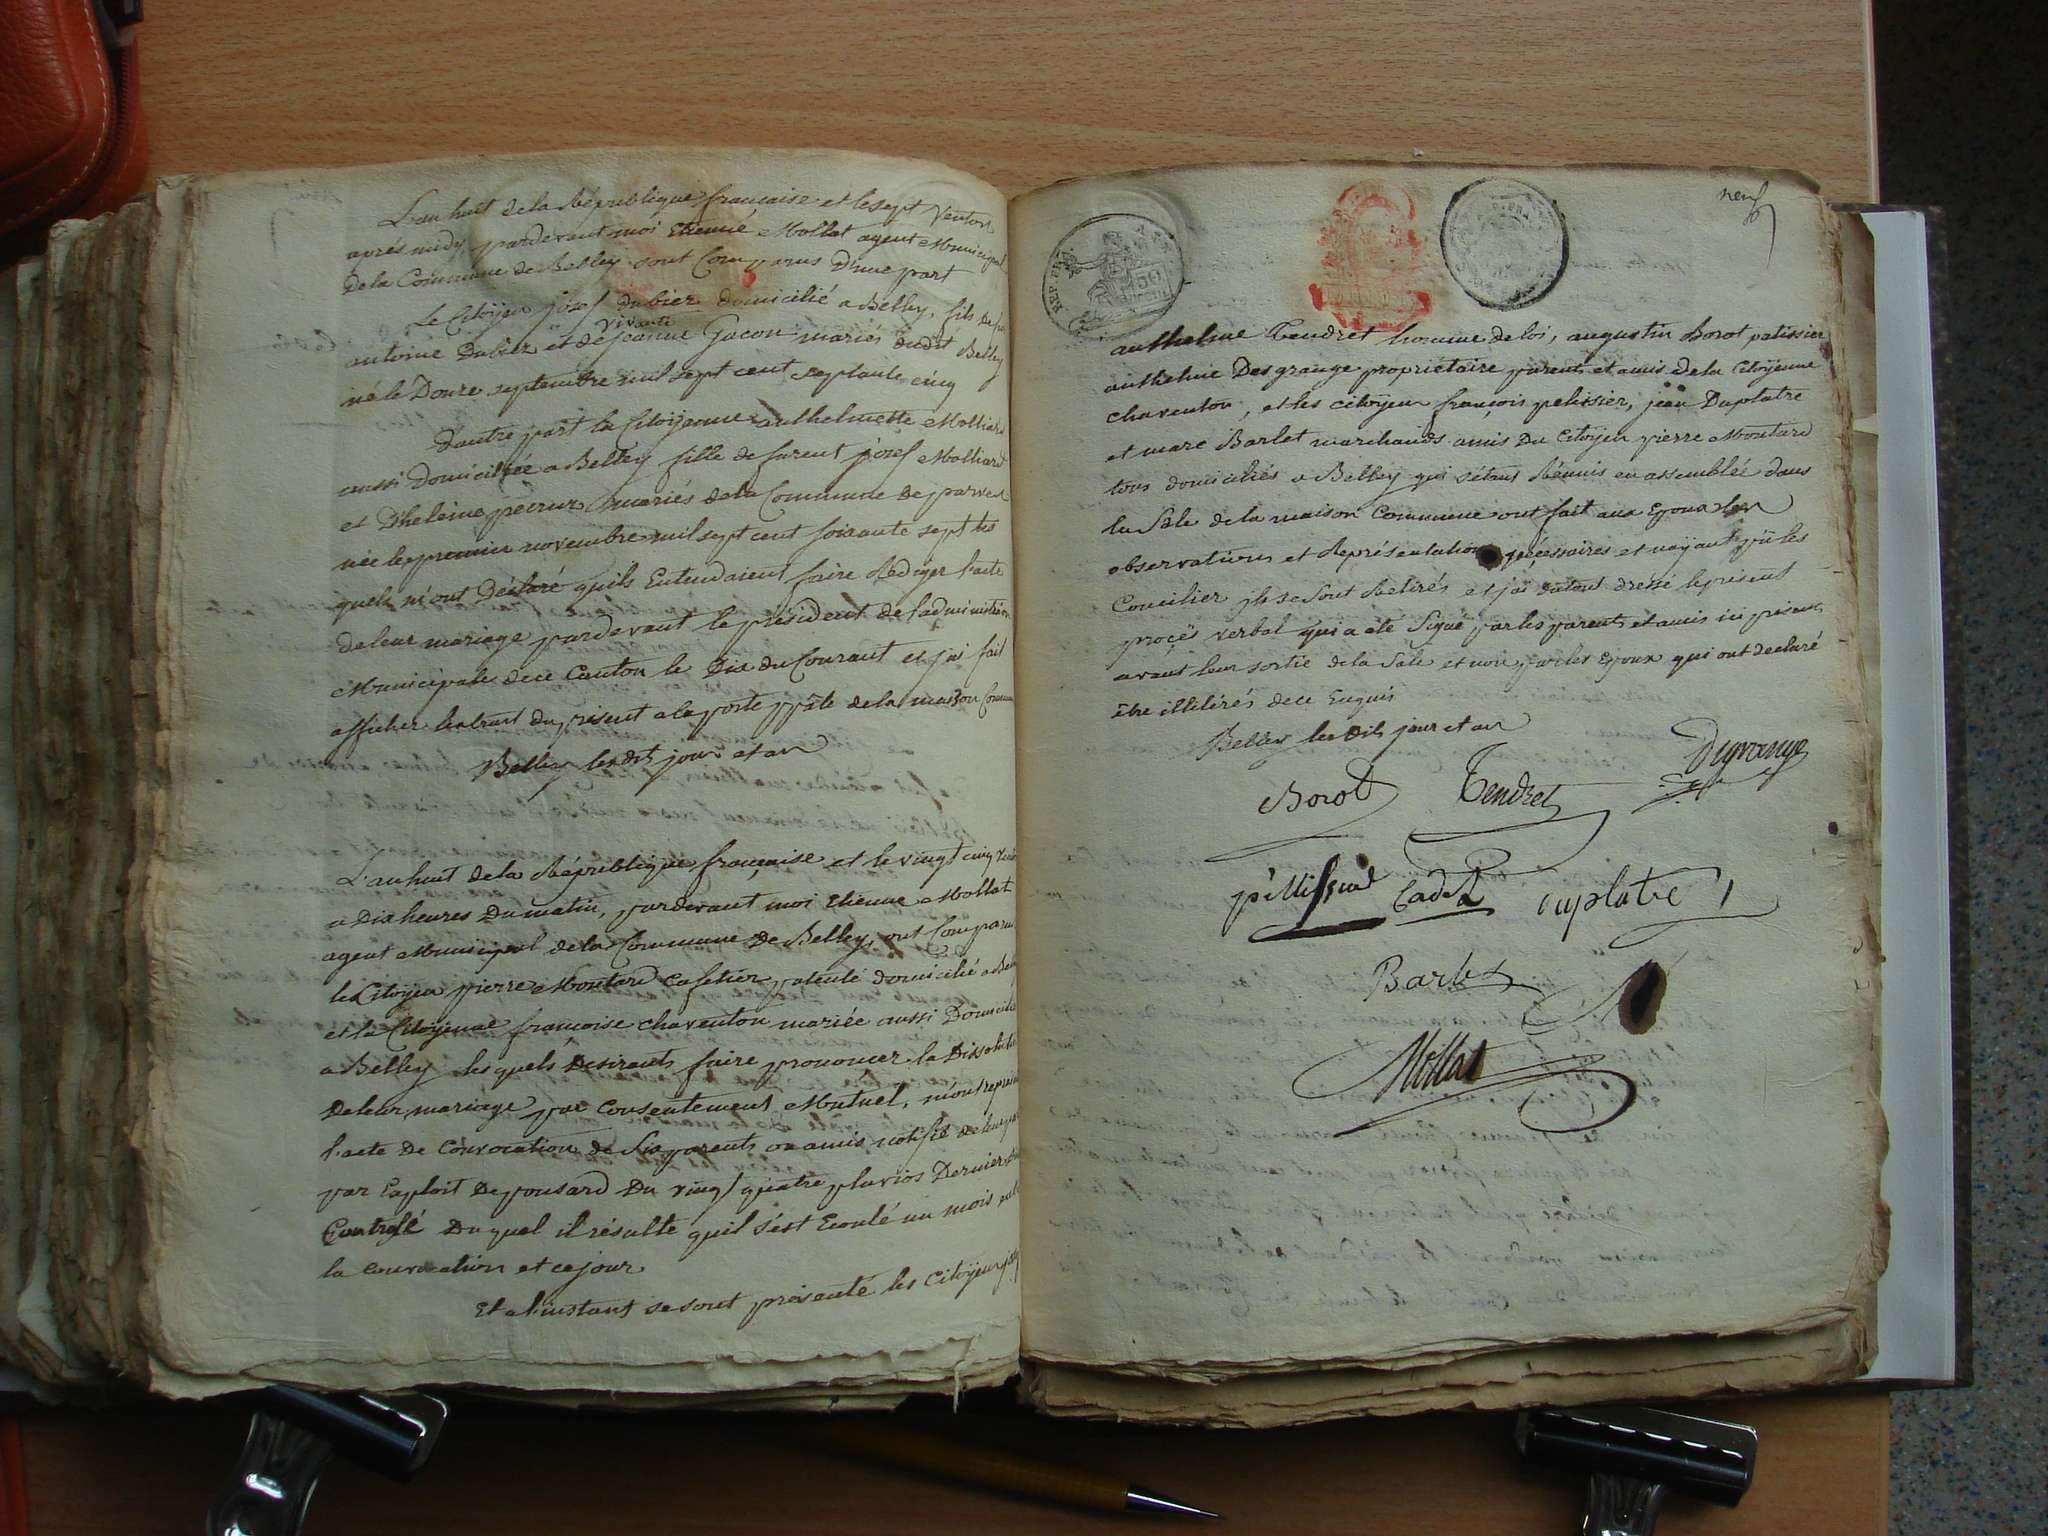 L'an huit de la République française et le sept Ventos
aprés midy pardevant moi Etienne Mollat agent Municipal
De la Commune de Belley sont Comparus D'une part
Le Citoyen josef Dubiez domicilié a Belley, fils de feu
antoine Dubiez et de vivante jeanne Gacon mariés dudit Belley
né le Douze septembre mil sept cent septante cinq
D'autre part la Citoyenne anthelmette Molliard
aussi Domiciliée a Belley fille de furent josef Molliard
et D'heleine pecruz mariés de la Commune de parves
née le premier novembre mil sept cent soixante sept les
quels m'ont Déclaré quils Entendaient faire Rédiger l'acte
de leur mariage pardevant le président de l'administration
Municipale de ce Canton le Dix du Courant et j'ai fait
afficher l'extrait du présent a la porte pple de la maison Commune
Belley les dits jour et an
L'an huit de la République française et le vingt cinq Vent
a Dix heures Du matin, pardevant moi Etienne Mollat
agent Municipal de la Commune De Belley, ont Comparu
le Citoyen pierre Moutard Cafetier patenté domicilié a Belley
et la Citoyenne françoise chaventon mariée aussi Domiciliée
a Belley les quels Desirants faire prononcer la Dissolution
De leur mariage par Consentement Mutuel, m'ont représ
l'acte de Convocation de Six parents ou amis notifié de leur part
par Exploit De ponsard Du vingt quatre pluvios Dernier
Controlé Du quel il résulte quil s'est Ecoulé un mois entre
la Convocation et ce jour
Et a l'instant se sont présenté les Citoyens
neuf
REP. FRA.
50
anthelme Tendret homme de loi, augustin Borot patissier
anthelme Desgrange propriétaire parents et amis de la Citoyenne
chaventon, et les citoyens françois pelissier, jean Duplatre
et marc Barlet marchands amis Du Citoyen pierre Moutard
tous domiciliés a Belley qui s'étant Réunis en assemblée dans
la Sale de la maison Commune ont fait aux Epoux les
observations et Représentations nécessaires et n'ayant pû les
Concilier ils se sont Retirés et j'ai dutout dressé le présent
proçés verbal qui a été Signé par les parents et amis ici présents
avant leur sortie de la Sale et non par les Epoux qui ont declaré
être illitérés de ce Enquis
Belley les dits jour et an
Borot Tendret Degrange
pillissié Cadet duplatre
Barlet
Mollat